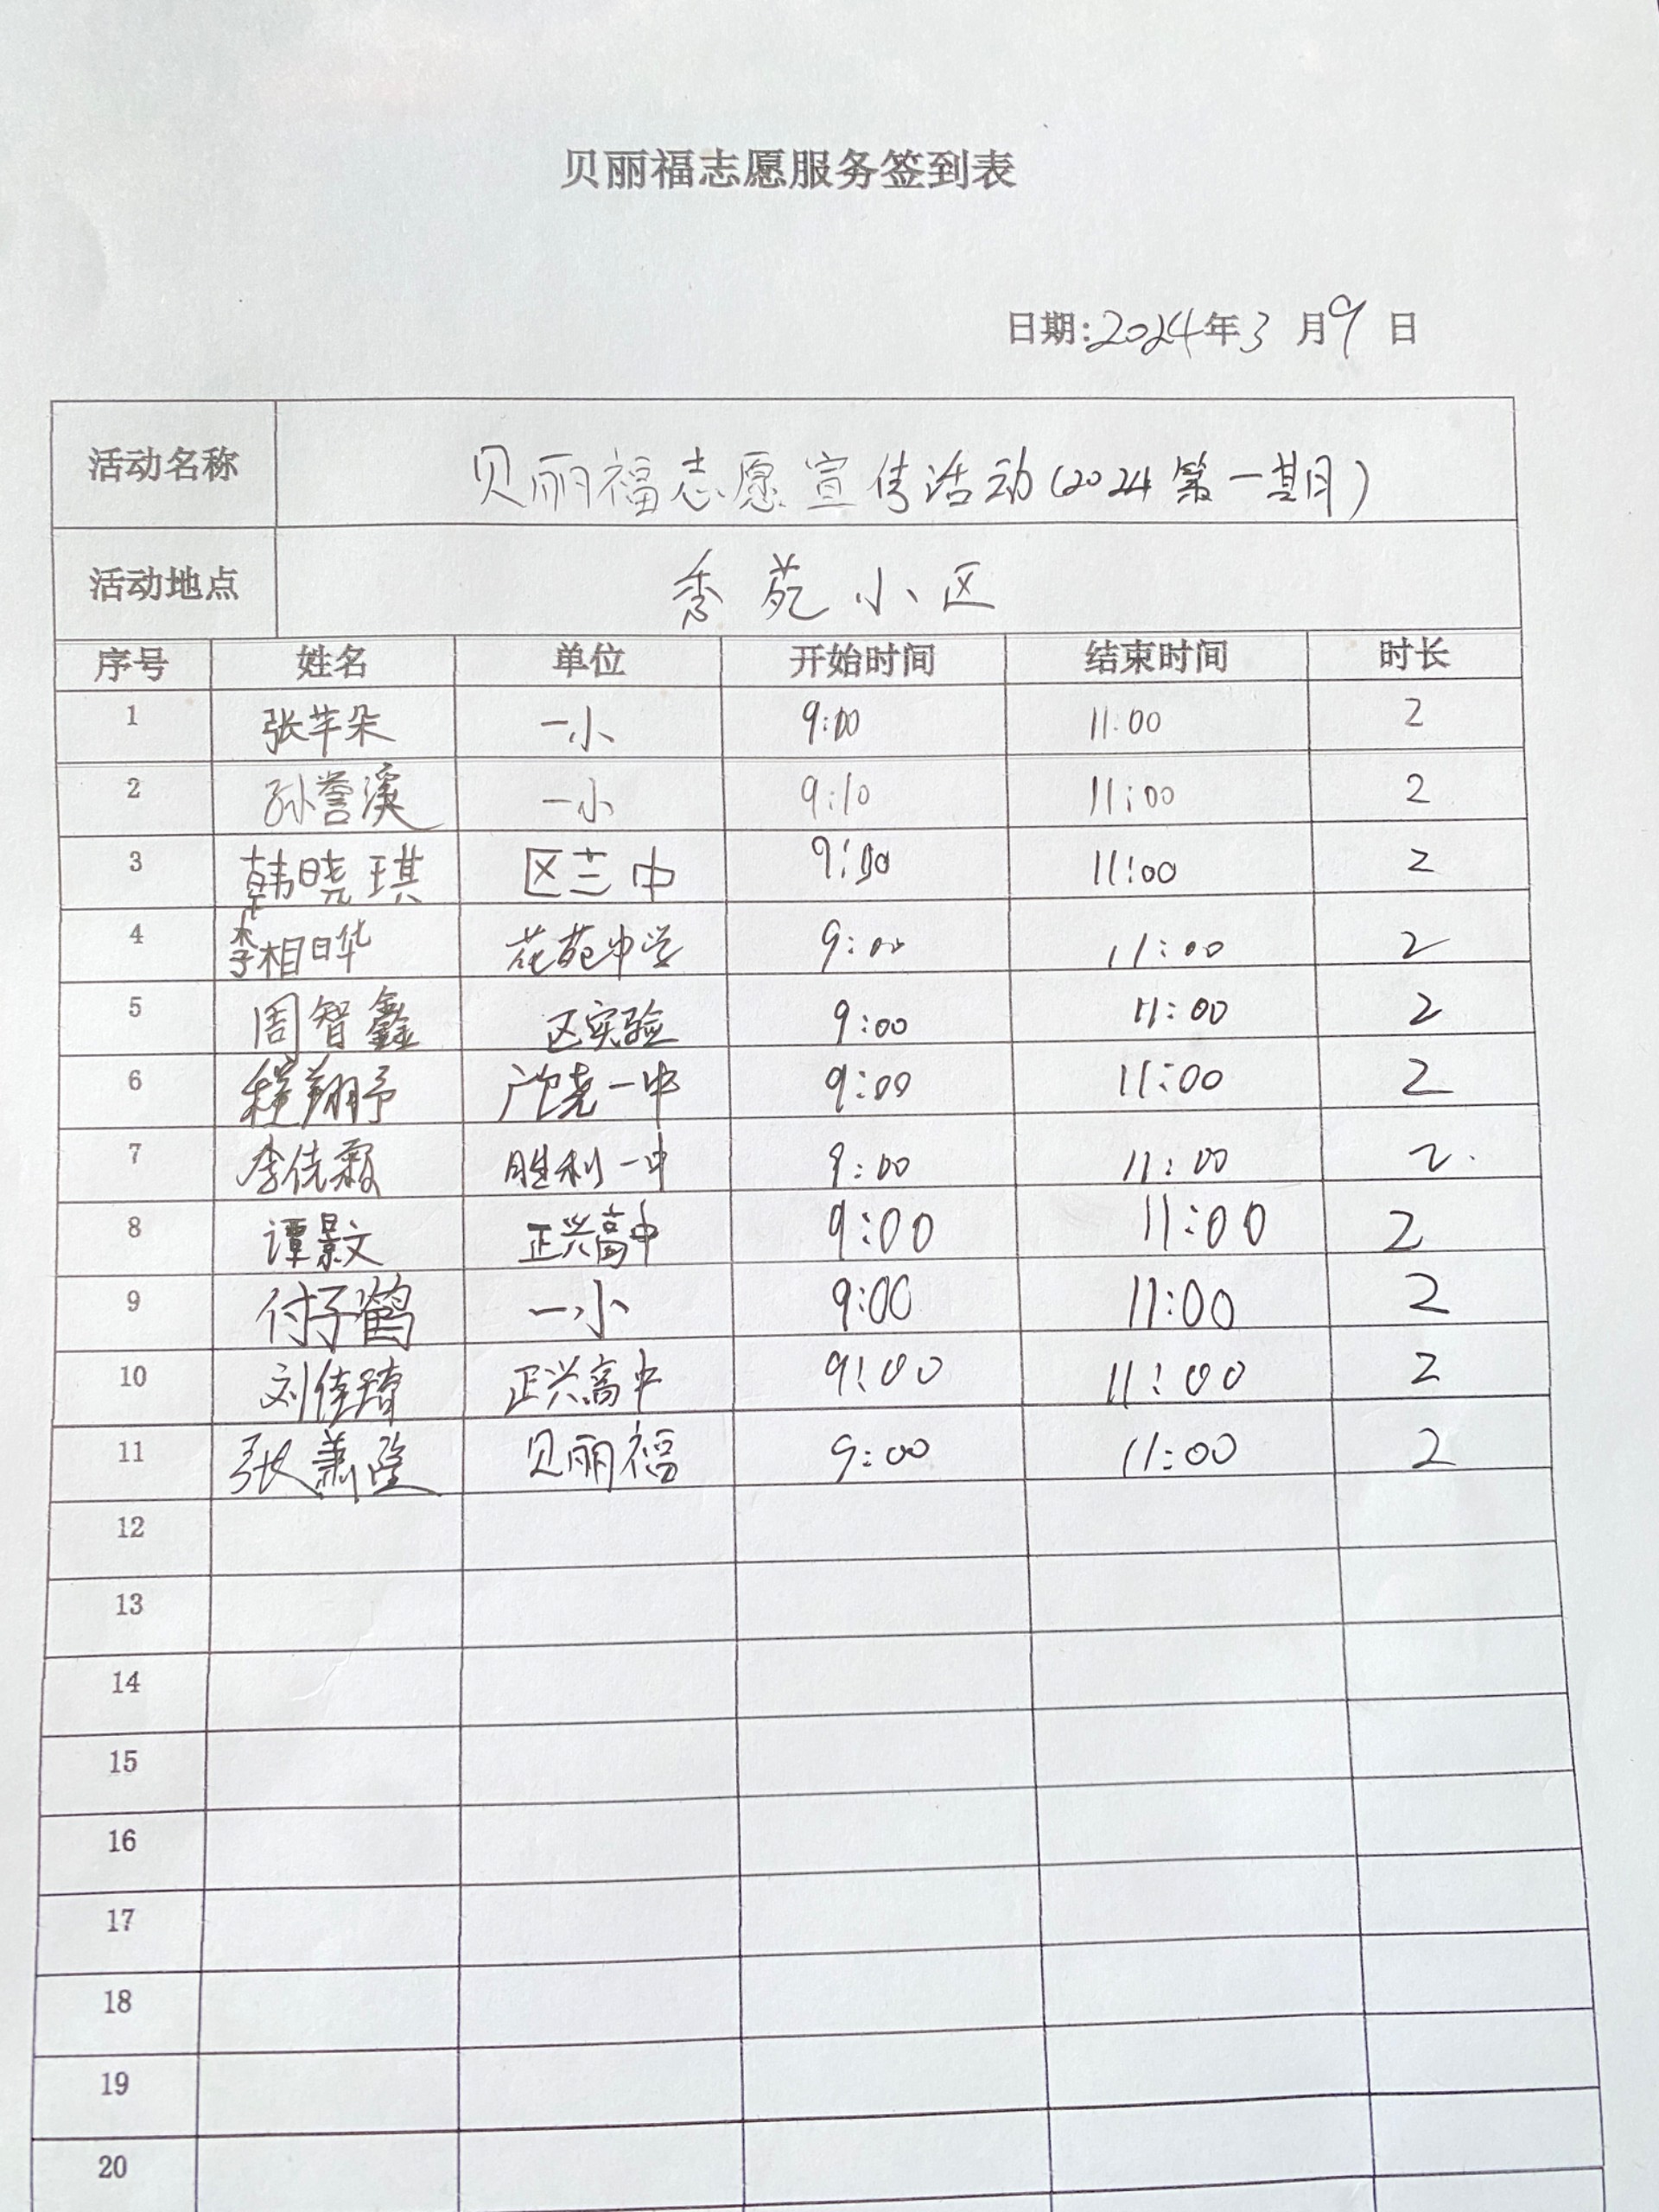 贝丽福志愿服务签到表
日期:2024年3月9日
活动名称 贝丽福志愿宣传活动(2024第一期)
活动地点 秀苑小区
序号 姓名 单位 开始时间 结束时间 时长
1 张芊朵 一小 9:00 11:00 2
2 孙誉溪 一小 9:10 11:00 2
3 韩晓琪 区三中 9:00 11:00 2
4 李相晔 花苑中学 9:00 11:00 2
5 周智鑫 区实验 9:00 11:00 2
6 程翔予 广饶一中 9:00 11:00 2
7 李佳颖 胜利一中 9:00 11:00 2
8 谭景文 正兴高中 9:00 11:00 2
9 付子鹤 一小 9:00 11:00 2
10 刘佳 正兴高中 9:00 11:00 2
11 张萧 贝丽福 9:00 11:00 2
12
13
14
15
16
17
18
19
20